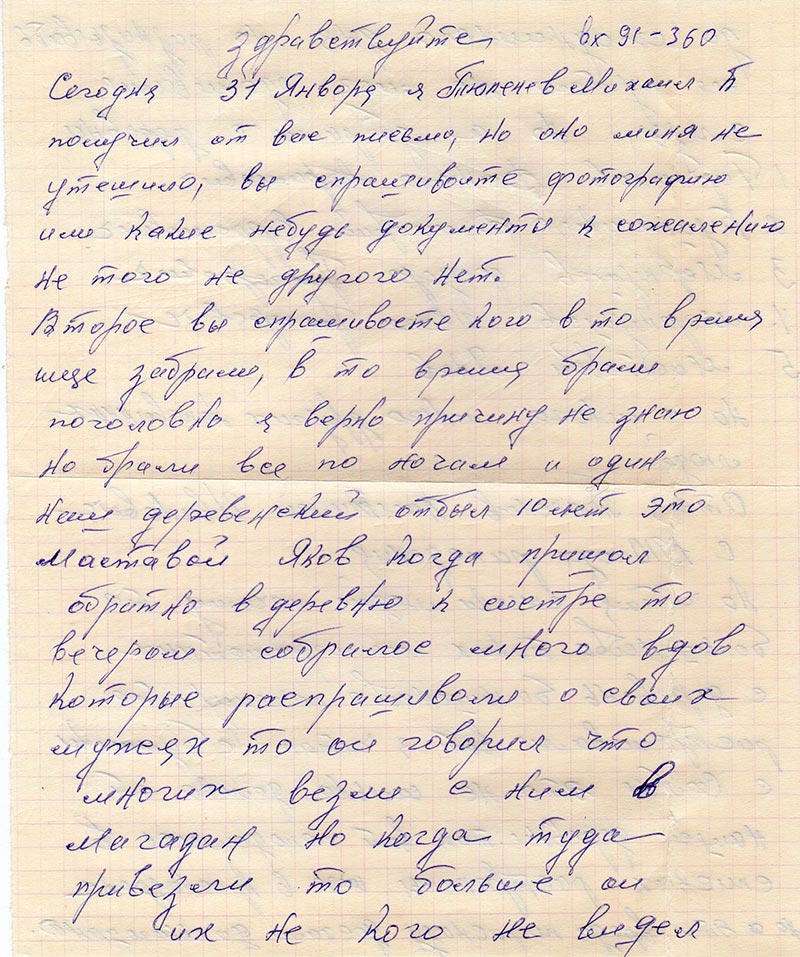 здравствуйте вх 91-360
Сегодня 31 Января я Тюленев Михаил П
получил от вас письмо, но оно миня не
утешило, вы спрашивоите фотографию
или какие небудь документы к сожалению
не того не другого нет.
Второе вы спрашивоете кого в то время
ище забрали, в то время брали
поголовно я верно причину не знаю
но брали все по ночам и один
наш деревенский отбыл 10 лет это
Маставой Яков когда пришол
обратно в деревню к систре то
вечером собралос много вдов
которые распрашивали о своих
мужеях то он говорил что
многих везли с ним в
Магадан но когда туда
привезли то больше он
их не кого не видел